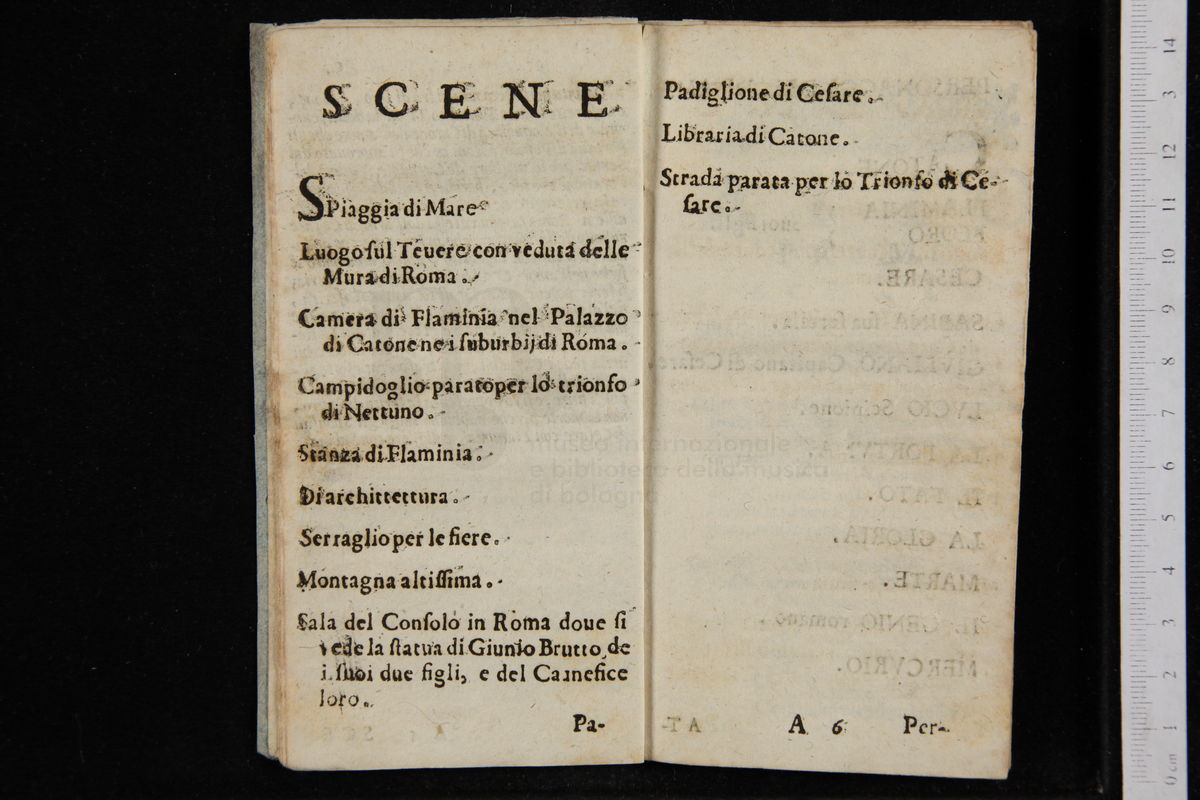 SCENE
SPiaggia di Mare
Luogo ſul Teuere con veduta delle
Mura di Roma.
Camera di Flaminia nel Palazzo
di Catone ne i ſuburbij di Roma.
Campidoglio parato per lo trionfo
di Nettuno.
Stanza di Flaminia.
Di archittettura.
Serraglio per le fiere.
Montagna altiſſima.
Sala del Conſolo in Roma doue ſi
vede la ſtatua di Giunio Brutto, de
i ſuoi due figli, e del Carnefice
loro.
Pa-
Padiglione di Ceſare.
Libraria di Catone.
Strada parata per lo Trionfo di Ce-
ſare.
A 6 Per-
museo internazionale
e biblioteca della musica
di bologna
0 cm 1 2 3 4 5 6 7 8 9 10 11 12 3 14